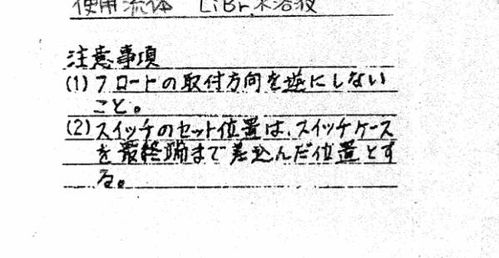 使用流体 LiBr水溶液
注意事項
(1) フロートの取付方向を逆にしない
こと。
(2) スイッチのセット位置は、スイッチケース
を最終端まで差込んだ位置とす
る。